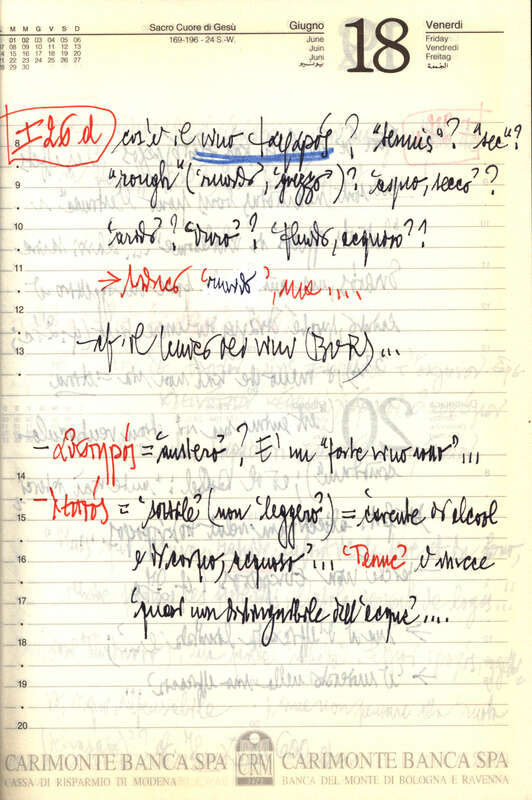 L M M G V S D
01 02 03 04 05 06
07 08 09 10 11 12 13
14 15 16 17 18 19 20
21 22 23 24 25 26 27
28 29 30
Sacro Cuore di Gesù
169-196 - 24 S.-W.
Giugno
June
Juin
Juni
يونيــو
18
Venerdi
Friday
Vendredi
Freitag
الجمعة
I 26 d cos'è il vino φαφαρός? "tenuis"? "sec"?
"rough" ("ruvido", "grezzo")? "aspro, secco"?
"arido"? "duro"? "fluido, acquoso"?
→ "ruvido", ma ....
- cf. il lessico del vino (BUR)...
- αὐστηρός = "austero"? E' un "forte vino nero"...
- λεπτός = "sottile" (non "leggero") = "carente di alcool
e di corpo, acquoso"... "Tenue" è invece
"quasi non distinguibile dall'acqua"....
8
9
10
11
12
13
14
15
16
17
18
19
20
CARIMONTE BANCA SPA
CASSA DI RISPARMIO DI MODENA
CRM
CARIMONTE BANCA SPA
BANCA DEL MONTE DI BOLOGNA E RAVENNA